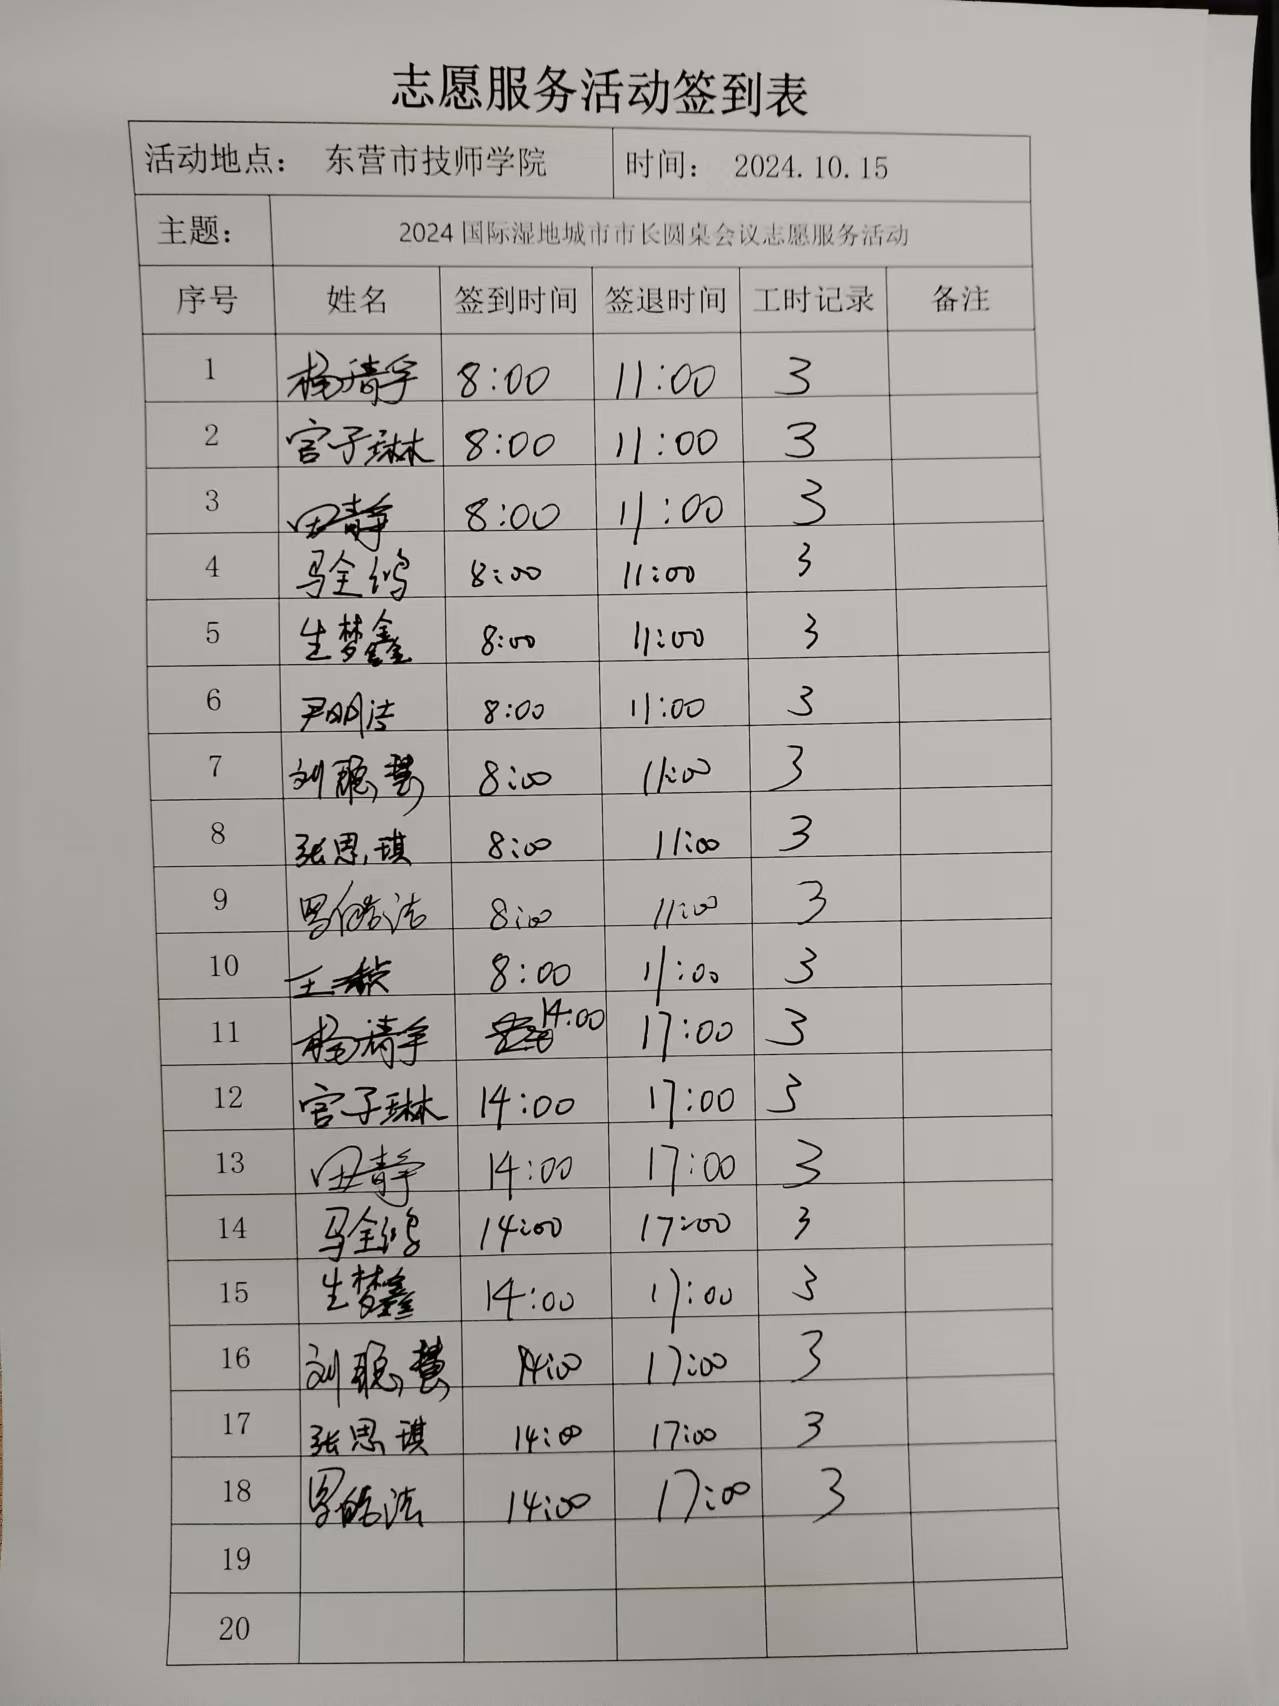 志愿服务活动签到表
活动地点： 东营市技师学院 时间： 2024.10.15
主题： 2024国际湿地城市市长圆桌会议志愿服务活动
序号 姓名 签到时间 签退时间 工时记录 备注
1 杨靖宇 8:00 11:00 3
2 宫子琳 8:00 11:00 3
3 田静 8:00 11:00 3
4 马全鸿 8:00 11:00 3
5 生梦鑫 8:00 11:00 3
6 尹明洁 8:00 11:00 3
7 刘聪慧 8:00 11:00 3
8 张思琪 8:00 11:00 3
9 8:00 11:00 3
10 王 8:00 11:00 3
11 杨靖宇 14:00 17:00 3
12 宫子琳 14:00 17:00 3
13 田静 14:00 17:00 3
14 马全鸿 14:00 17:00 3
15 生梦鑫 14:00 17:00 3
16 刘聪慧 14:00 17:00 3
17 张思琪 14:00 17:00 3
18 14:00 17:00 3
19
20